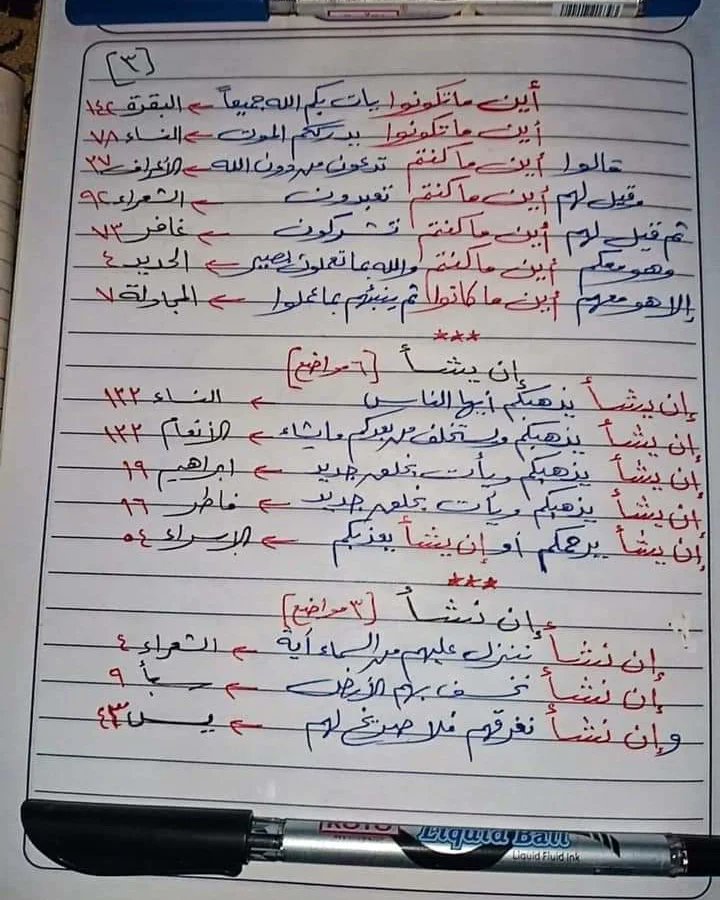 [٣]
أين ما تكونوا يأت بكم الله جميعاً ← البقرة ١٤٨
أين ما تكونوا يدرككم الموت ← النساء ٧٨
قالوا أين ما كنتم تدعون من دون الله ← الأعراف ٣٧
وقيل لهم أين ما كنتم تعبدون ← الشعراء ٩٢
ثم قيل لهم أين ما كنتم تشركون ← غافر ٧٣
وهو معكم أين ما كنتم والله بما تعملون بصير ← الحديد ٤
إلا هو معهم أين ما كانوا ثم ينبئهم بما عملوا ← المجادلة ٧
***
إن يشأ [٦ مواضع]
إن يشأ يذهبكم أيها الناس ← النساء ١٣٣
إن يشأ يذهبكم ويستخلف من بعدكم ما يشاء ← الأنعام ١٣٣
إن يشأ يذهبكم ويأت بخلق جديد ← ابراهيم ١٩
إن يشأ يذهبكم ويأت بخلق جديد ← فاطر ١٦
إن يشأ يرحمكم أو إن يشأ يعذبكم ← الإسراء ٥٤
***
إن نشأ [٣ مواضع]
إن نشأ ننزل عليهم من السماء آية ← الشعراء ٤
إن نشأ نخسف بهم الأرض ← سبأ ٩
وإن نشأ نغرقهم فلا صريخ لهم ← يس ٤٣
KOTO Liquid Ball
Liquid Fluid Ink